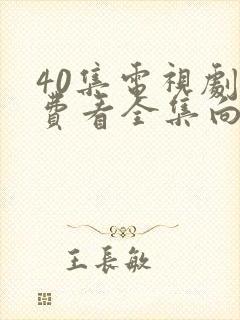 40集電視劇
費看全集向
王長敏